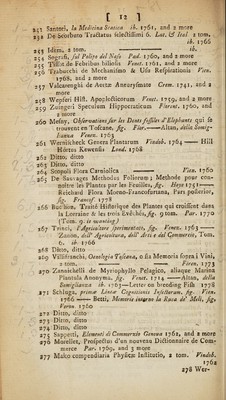 [ 12 ]
251 Santori, la Medicina Statica ib. 1761, and 2 more
252 De Scorbuto Tractatus selectissimi 6. Lat. & Ital 2 tom.
ib. 1766
253 Idem, 2 tom. ib.
254 Sografi, sul Polipo del Naso Pad. 1760, and 2 more
255 Tissot de Febribus biliosis Venet. 1761, and 2 more
256 Trabucchi de Mechanismo & Usu Respirationis Vien.
1768, and 2 more
257 Valcarenghi de Aortæ Aneurysmate Crem. 1741, and 2
more
258 Wepferi Hist. Apoplecticorum Venet. 1759, and 2 more
259 Zuingeri Specimen Hippocraticum Florent. 1760, and
2 more
260 Mesny, Observations sur les Dents fossiles d'Elephants qui se
trouvent en Toscane, fig. Flor.——Altan, della Somiglianza
Venez. 1763
261 Wernischeck Genera Plantarum Vindob. 1764 — Hill
Hortus Kewensis Lond. 1768
262 Ditto, ditto
263 Ditto, ditto
264 Scopoli Flora Carniolica Vien. 1760
265 De Sauvages Methodus Foliorum; Methode pour connoître
les Plantes par les Feuilles, fig. Haye 1751——
Reichard Flora Moeno-Francofurtana, Pars posterior,
fig. Francof. 1778
266 Buchoz, Traité Historique des Plantes qui croissent dans
la Lorraine & les trois Evêchés, fig. 9 tom. Par. 1770
(Tom. 9. is wanting)
267 Trinci, l'Agricoltore sperimentato, fig. Venez. 1763——
Zanon, dell' Agricoltura, dell' Arti e del Commercio, Tom.
6. ib. 1766
268 Ditto, ditto
269 Villifranchi, Oenologia Toscana, o sia Memoria sopra i Vini,
2 tom. Firen. 1773
270 Zannichelli de Myriophyllo Pelagico, aliaque Marina
Plantula Anonyma, fig. Venet. 1714——Altan, della
Somiglianza ib. 1763—Letter on breeding Fish 1778
271 Schluga, primæ Lineæ Cognitionis Insectorum, fig. Vien.
1766——Betti, Memorie intorno la Ruca de' Meli, fig.
Veron. 1760
272 Ditto, ditto
273 Ditto, ditto
274 Ditto, ditto
275 Sappetti, Elementi di Commerzio Genova 1762, and 2 more
276 Morellet, Prospectus d'un nouveau Dictionnaire de Commerce
Par. 1769, and 3 more
277 Mako compendiaria Physicæ Institutio, 2 tom. Vindob.
1762
278 Wer-